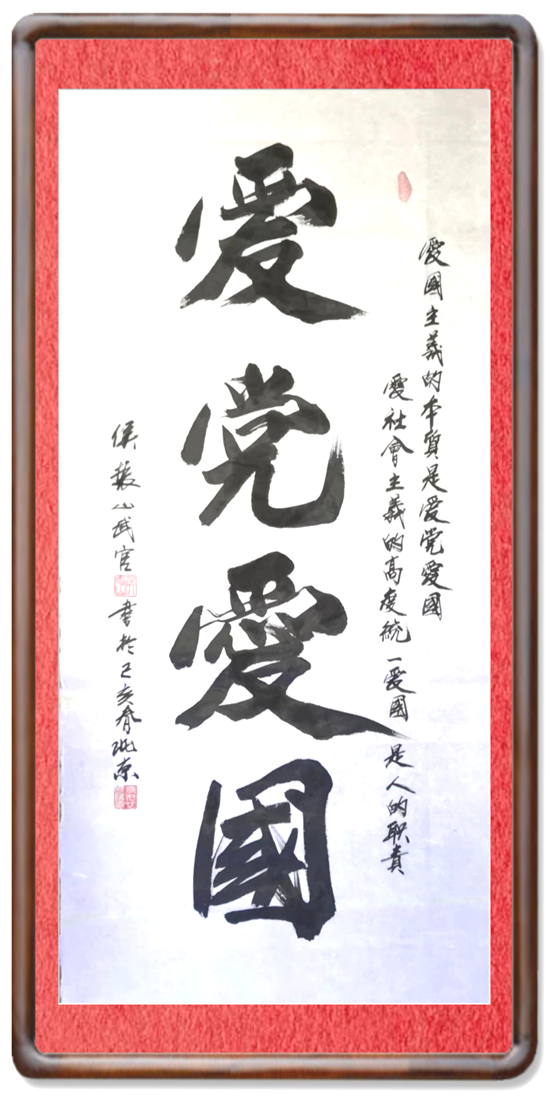 愛國主義的本質是爱党愛國
愛社會主義的高度統一愛國是人的职責
爱党愛國
侯振山武官書於己亥春北京